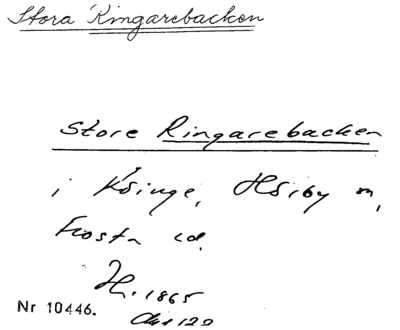 Stora Ringarebacken
Store Ringarebacken
i Kvinge, Hörby m,
Frosta
H. 1865
Nr 10446.